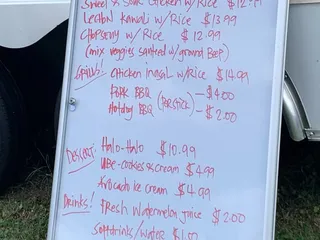 Sweet & Sour Chicken w/Rice $12.99
Lechon Kawali w/Rice $13.99
Chopsuey w/Rice $12.99
(mix veggies sauteed w/ground Beef)
Grill! Chicken inasal w/Rice $14.99
Pork BBQ (per stick) - $4.00
Hotdog BBQ - $2.00
Dessert: Halo-Halo $10.99
Ube-cookies & cream $4.99
Avocado ice cream $4.99
Drinks! Fresh Watermelon juice $2.00
Softdrinks/Water $1.50